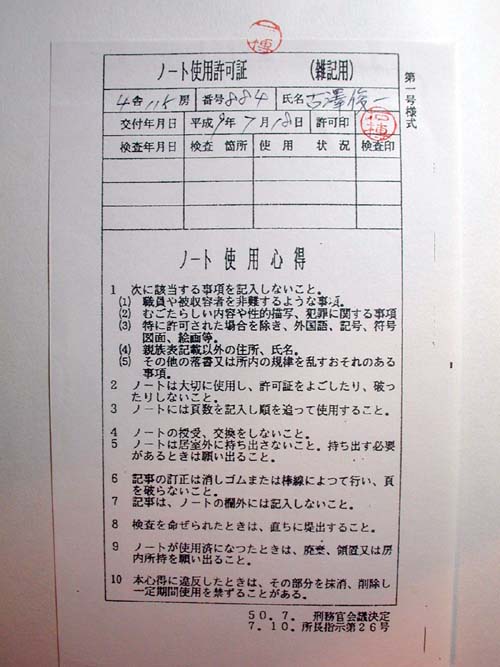 ノート使用許可証 (雑記用)
第一号様式
4舎115房 番号884 氏名 古澤俊一
交付年月日 平成9年7月18日 許可印
検査年月日 検査箇所 使用状況 検査印
ノート使用心得
1 次に該当する事項を記入しないこと。
(1) 職員や被収容者を非難するような事項。
(2) むごたらしい内容や性的描写、犯罪に関する事項
(3) 特に許可された場合を除き、外国語、記号、符号
図面、絵画等。
(4) 親族表記載以外の住所、氏名。
(5) その他の落書又は所内の規律を乱すおそれのある
事項。
2 ノートは大切に使用し、許可証をよごしたり、破っ
たりしないこと。
3 ノートには頁数を記入し順を追って使用すること。
4 ノートの授受、交換をしないこと。
5 ノートは居室外に持ち出さないこと。持ち出す必要
があるときは願い出ること。
6 記事の訂正は消しゴムまたは棒線によつて行い、頁
を破らないこと。
7 記事は、ノートの欄外には記入しないこと。
8 検査を命ぜられたときは、直ちに提出すること。
9 ノートが使用済になつたときは、廃棄、領置又は房
内所持を願い出ること。
10 本心得に違反したときは、その部分を抹消、削除し
一定期間使用を禁ずることがある。
50.7. 刑務官会議決定
7.10.所長指示第26号